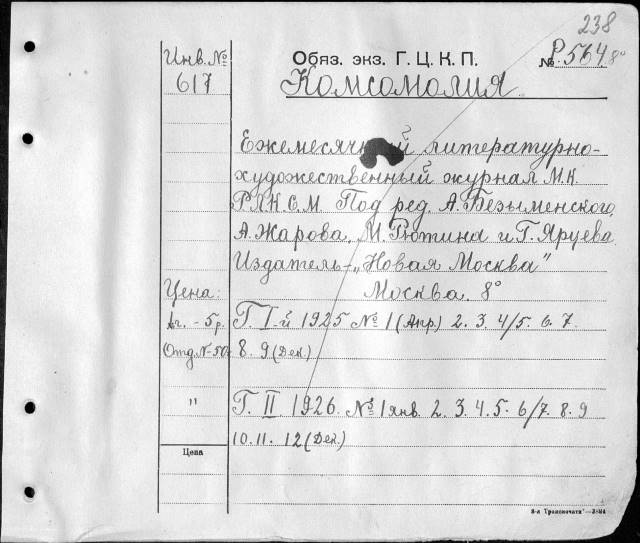 238
Инв. №
617
Обяз. экз. Г. Ц. К. П.
№ Р.564 8°
Комсомолия
Ежемесячный литературно-
художественный журнал М.К.
Р.Л.К.С.М. Под ред. А. Безыменского,
А. Жарова, М. Рютина и Г. Яруева
Издатель - „Новая Москва"
Москва. 8°
Цена:
Аг. - 5 р. Г. I-й 1925 № 1 (Апр.) 2. 3. 4/5. 6. 7.
Отд. № - 50 8. 9 (Дек.)
" Г. II. 1926. № 1 янв. 2. 3. 4. 5. 6/7. 8. 9
10. 11. 12 (Дек.)
Цена
8-я Транспечати"—3894